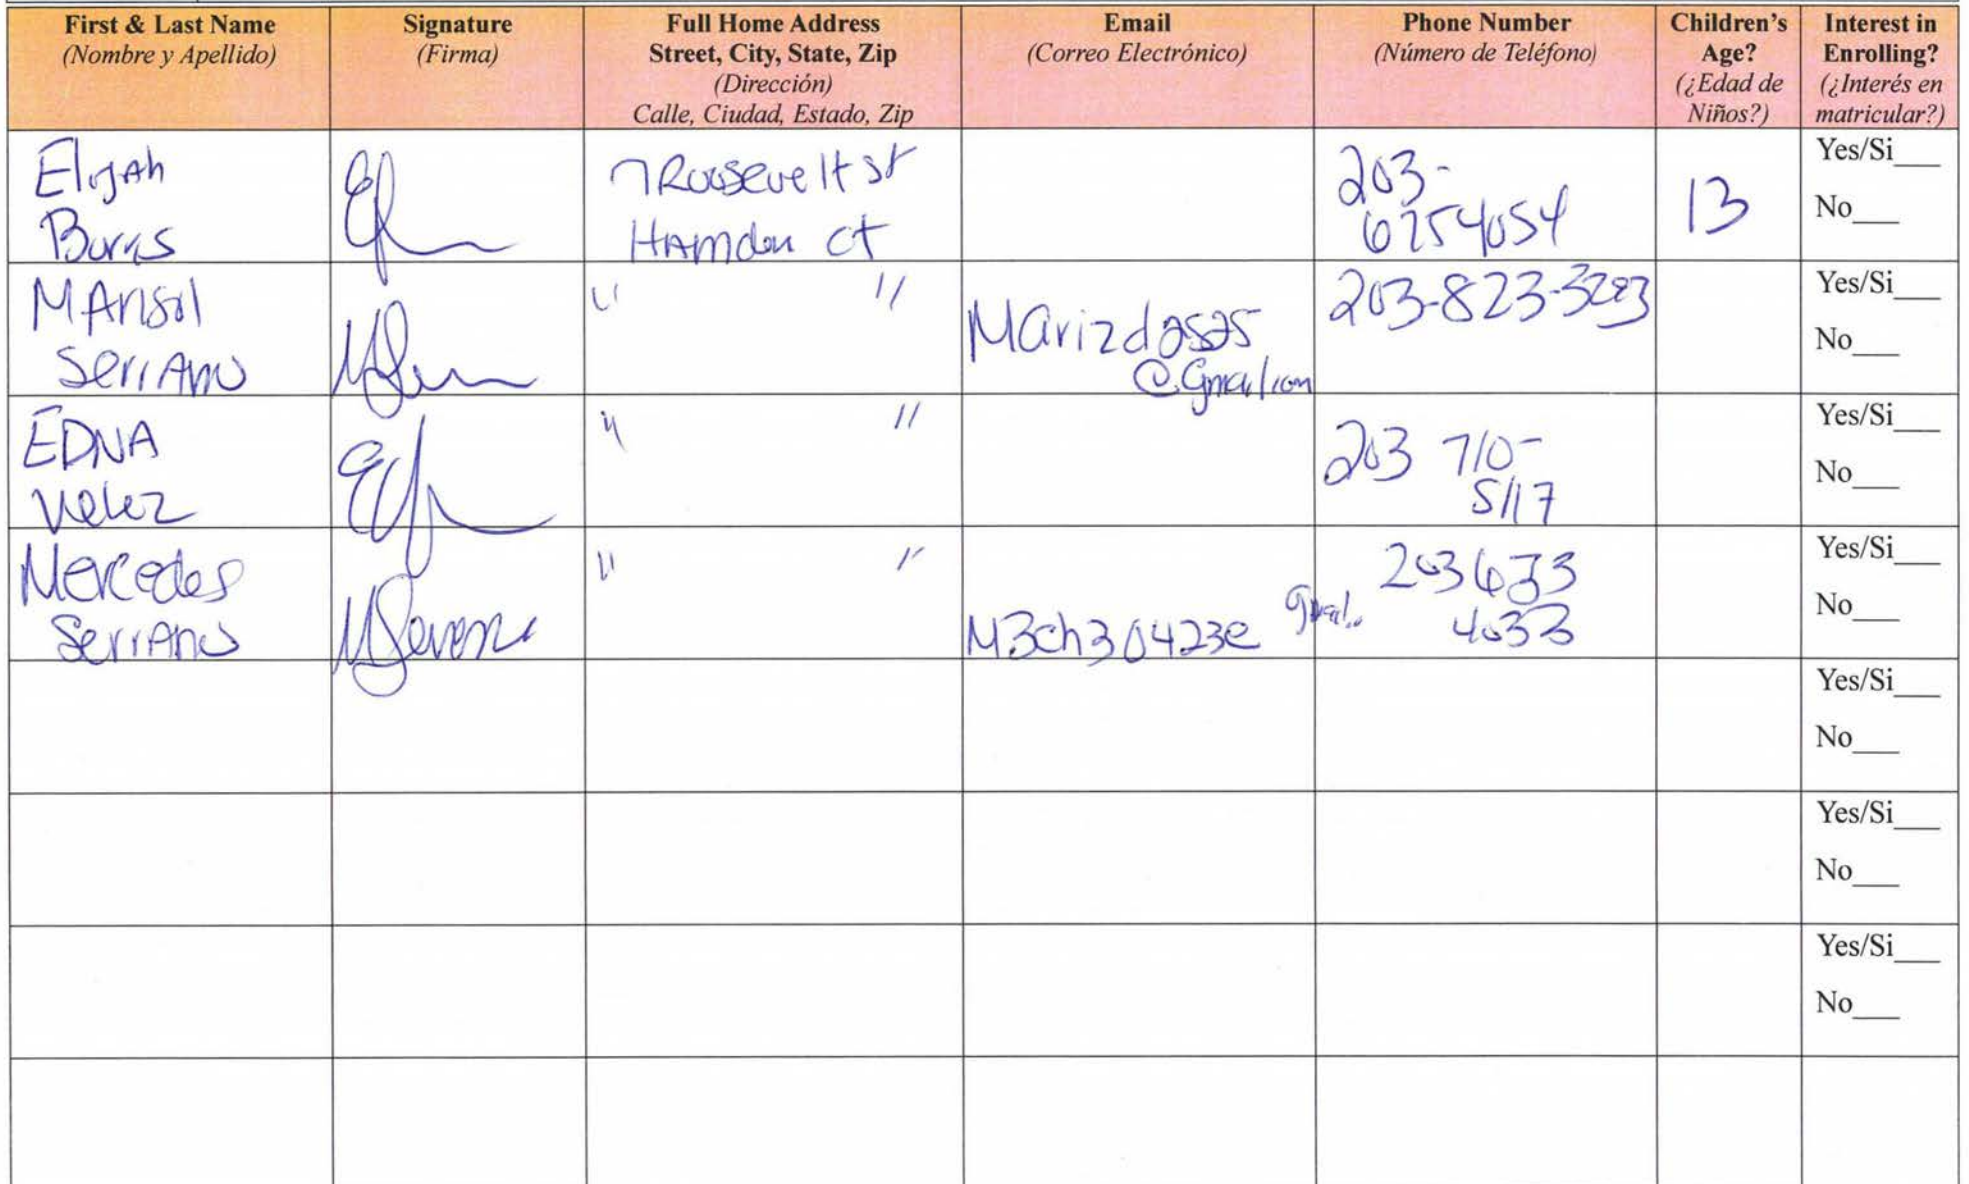 First & Last Name
(Nombre y Apellido)
Signature
(Firma)
Full Home Address
Street, City, State, Zip
(Dirección)
Calle, Ciudad, Estado, Zip
Email
(Correo Electrónico)
Phone Number
(Número de Teléfono)
Children's
Age?
(¿Edad de
Niños?)
Interest in
Enrolling?
(¿Interés en
matricular?)
Elijah
Burrs
7 Roosevelt St
Hamden CT
203-
6254054
13
Yes/Si___
No___
MArisol
SerrAno
" "
@Gmail.com
203-823-3283
Yes/Si___
No___
EDNA
Velez
" "
203 710-
5117
Yes/Si___
No___
Mercedes
SerrAno
" "
M3ch30423@
gmail.
203
4033
Yes/Si___
No___
Yes/Si___
No___
Yes/Si___
No___
Yes/Si___
No___